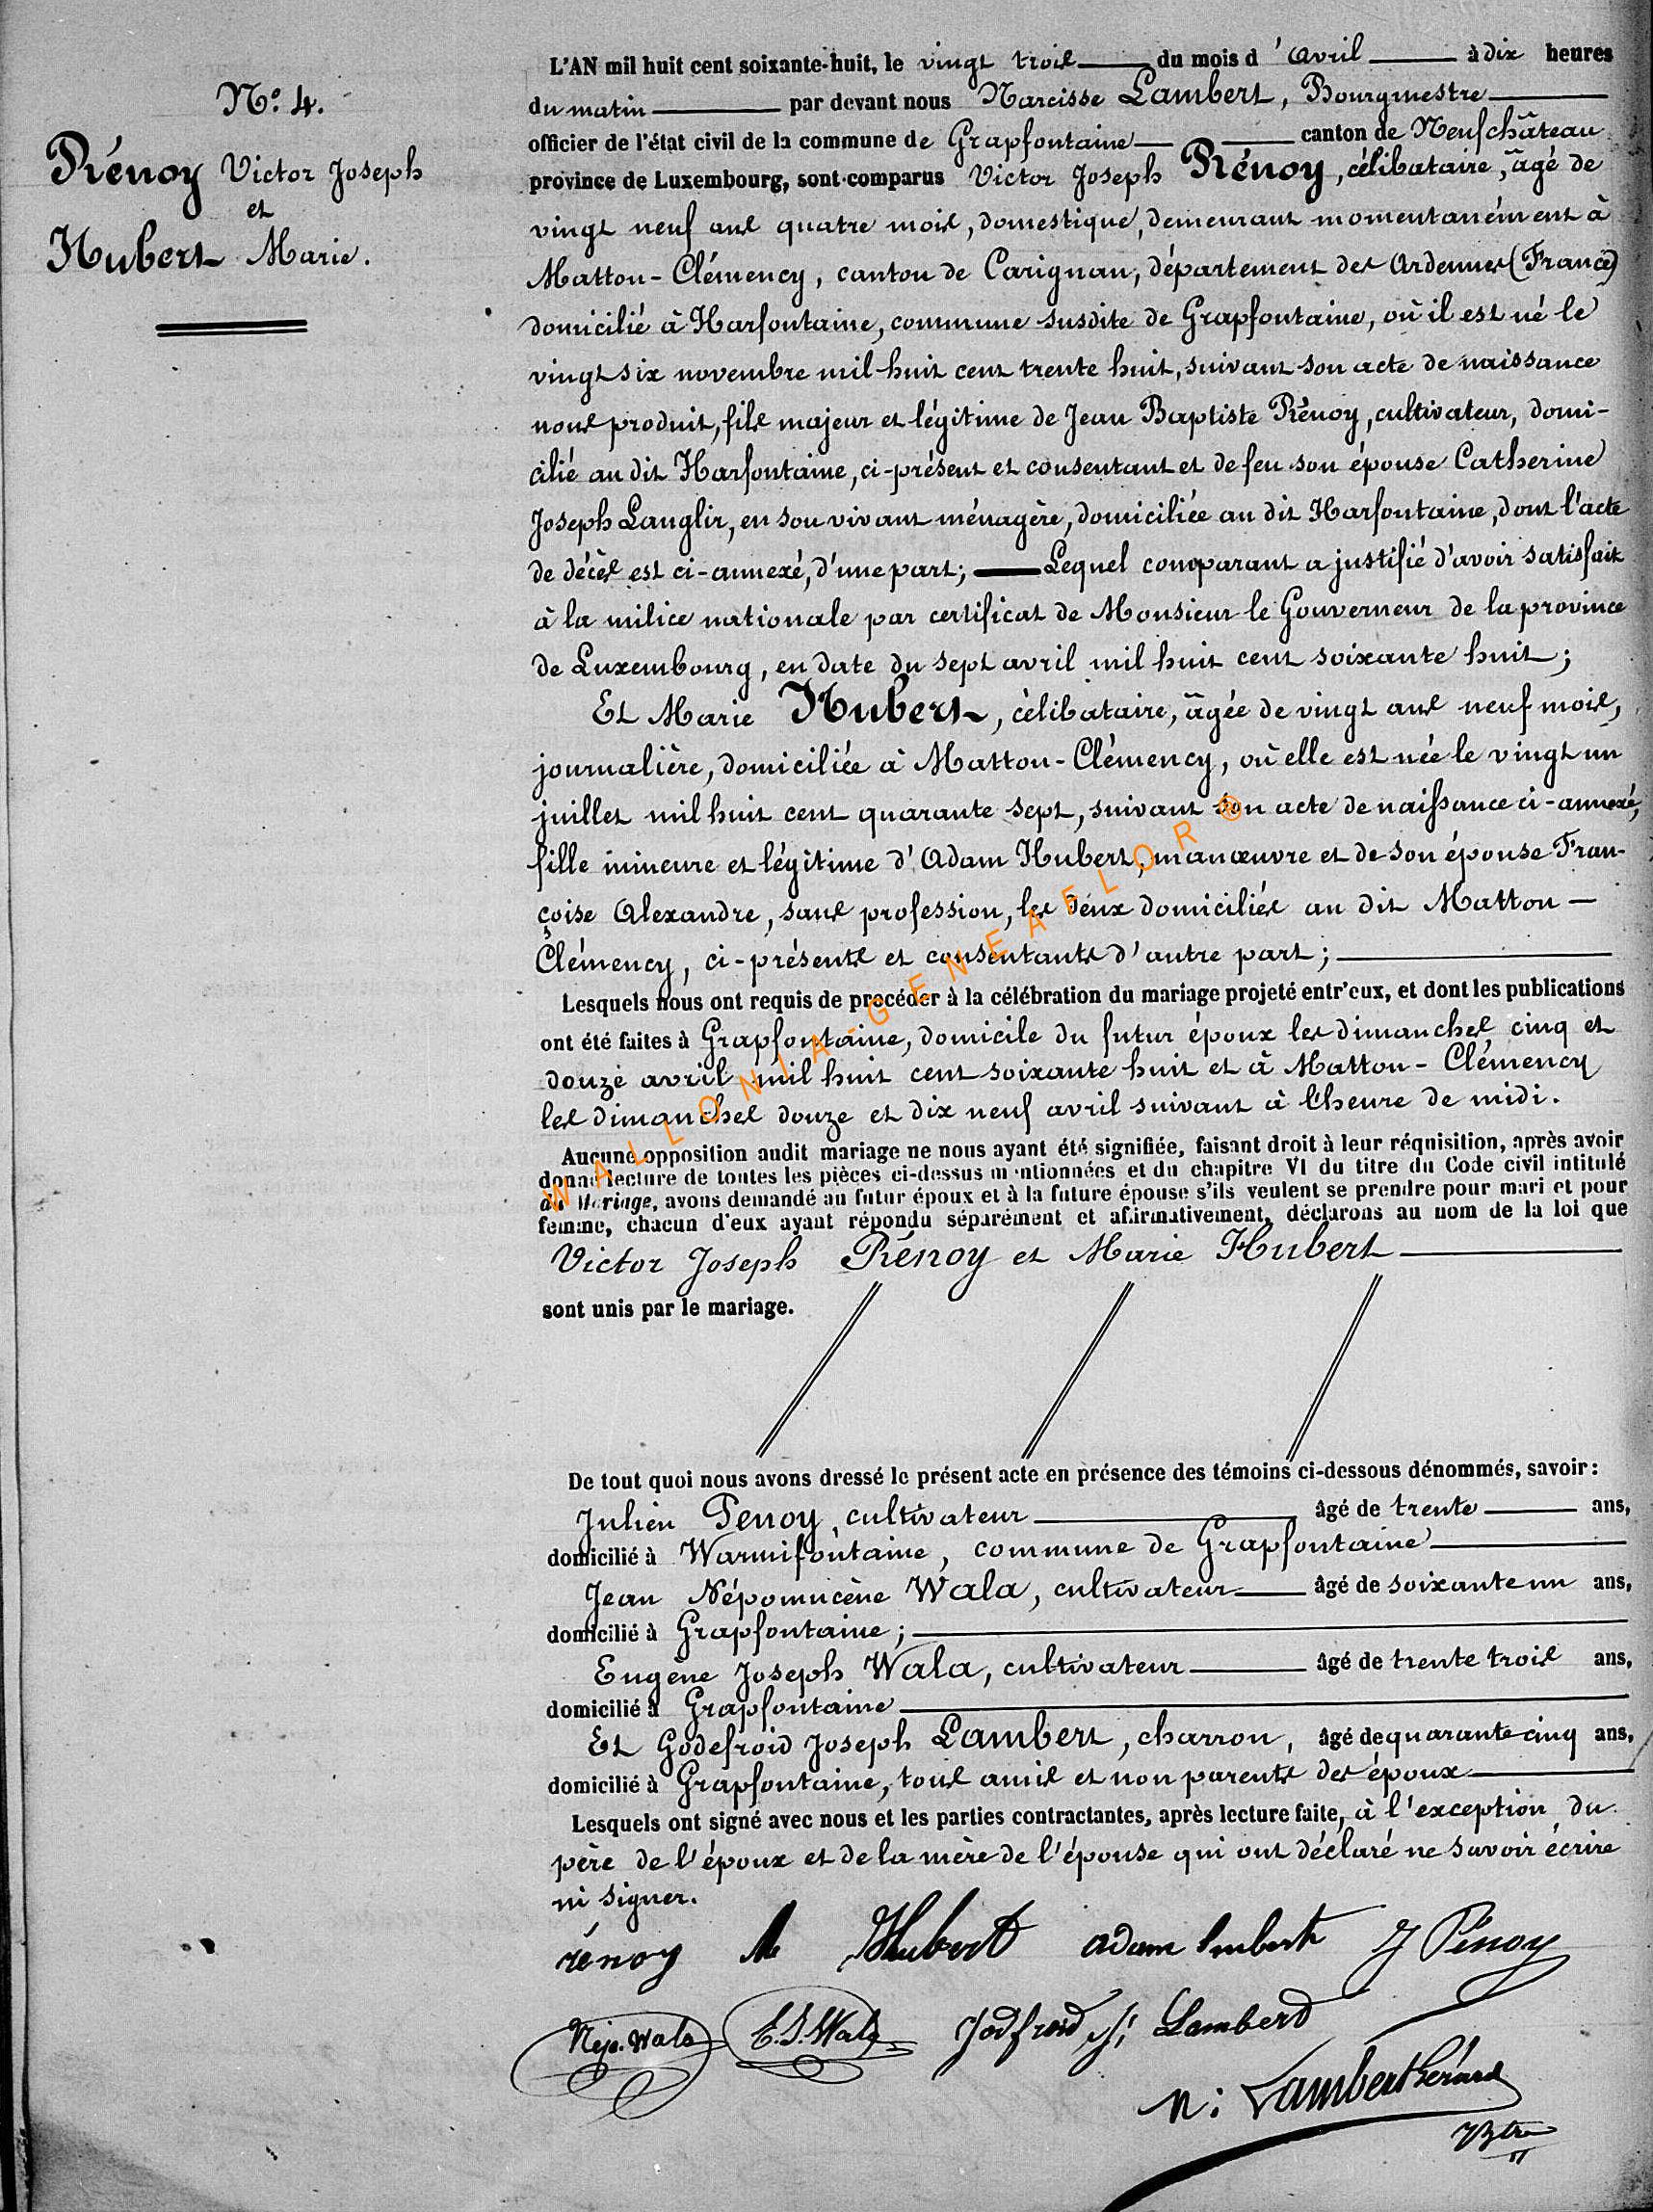 N.o 4.
Rénoy Victor Joseph
et
Hubert Marie.
L'AN mil huit cent soixante-huit, le vingt trois du mois d'avril à dix heures
du matin par devant nous Narcisse Lambert, Bourgmestre
officier de l'état civil de la commune de Grapfontaine canton de Neufchâteau
province de Luxembourg, sont comparus Victor Joseph Rénoy, célibataire, âgé de
vingt neuf ans quatre mois, domestique, demeurant momentanément à
Matton-Clémency, canton de Carignan, département des Ardennes (France)
domicilié à Harfontaine, commune susdite de Grapfontaine, où il est né le
vingt six novembre mil huit cent trente huit, suivant son acte de naissance
nous produit, fils majeur et légitime de Jean Baptiste Rénoy, cultivateur, domi-
cilié au dit Harfontaine, ci-présent et consentant et de feu son épouse Catherine
Joseph Langlir, en son vivant ménagère, domiciliée au dit Harfontaine, dont l'acte
de décès est ci-annexé, d'une part; — Lequel comparant a justifié d'avoir satisfait
à la milice nationale par certificat de Monsieur le Gouverneur de la province
de Luxembourg, en date du sept avril mil huit cent soixante huit;
Et Marie Hubert, célibataire, âgée de vingt ans neuf mois,
journalière, domiciliée à Matton-Clémency, où elle est née le vingt un
juillet mil huit cent quarante sept, suivant son acte de naissance ci-annexé,
fille mineure et légitime d'Adam Hubert, manœuvre et de son épouse Fran-
çoise Alexandre, sans profession, les deux domiciliés au dit Matton-
Clémency, ci-présents et consentants d'autre part;
Lesquels nous ont requis de procéder à la célébration du mariage projeté entr'eux, et dont les publications
ont été faites à Grapfontaine, domicile du futur époux les dimanches cinq et
douze avril mil huit cent soixante huit et à Matton-Clémency
les dimanches douze et dix neuf avril suivant à l'heure de midi.
Aucune opposition audit mariage ne nous ayant été signifiée, faisant droit à leur réquisition, après avoir
donné lecture de toutes les pièces ci-dessus mentionnées et du chapitre VI du titre du Code civil intitulé
du Mariage, avons demandé au futur époux et à la future épouse s'ils veulent se prendre pour mari et pour
femme, chacun d'eux ayant répondu séparément et affirmativement, déclarons au nom de la loi que
Victor Joseph Rénoy et Marie Hubert
sont unis par le mariage.
De tout quoi nous avons dressé le présent acte en présence des témoins ci-dessous dénommés, savoir:
Julien Penoy, cultivateur âgé de trente ans,
domicilié à Warmifontaine, commune de Grapfontaine
Jean Népomucène Wala, cultivateur âgé de soixante un ans,
domicilié à Grapfontaine;
Eugène Joseph Wala, cultivateur âgé de trente trois ans,
domicilié à Grapfontaine
Et Godefroid Joseph Lambert, charron, âgé de quarante cinq ans,
domicilié à Grapfontaine, tous amis et non parents des époux
Lesquels ont signé avec nous et les parties contractantes, après lecture faite, à l'exception du
père de l'époux et de la mère de l'épouse qui ont déclaré ne savoir écrire
ni signer.
rénoy M Hubert adam hubert J Pénoy
Nép. Wala E. J. Wala Godfroid J. Lambert
N: Lambert Gérard
Btre
WALLONIA-GENEAFLOR®